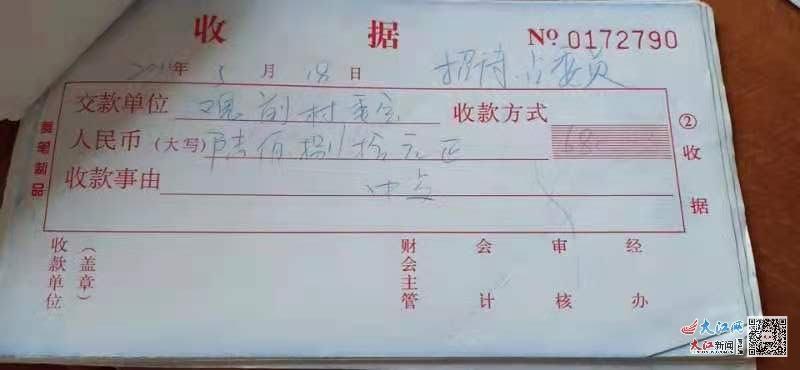 收 据 № 0172790
年 5 月 18 日 招待
交款单位 观前村委会 收款方式
人民币(大写) 陆佰捌拾元正 680
收款事由
②收据
美笔制品
收款单位(盖章) 财会主管 会计 审核 经办
大江网
大江新闻